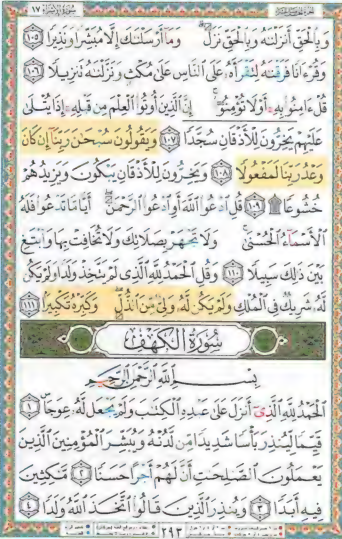 سُورَةُ الإِسْرَاءِ ١٧
وَبِالْحَقِّ أَنزَلْنَٰهُ وَبِالْحَقِّ نَزَلَ ۗ وَمَآ أَرْسَلْنَٰكَ إِلَّا مُبَشِّرًا وَنَذِيرًا ١٠٥
وَقُرْءَانًا فَرَقْنَٰهُ لِتَقْرَأَهُۥ عَلَى النَّاسِ عَلَىٰ مُكْثٍ وَنَزَّلْنَٰهُ تَنزِيلًا ١٠٦
قُلْ ءَامِنُوا بِهِۦٓ أَوْ لَا تُؤْمِنُوٓا ۚ إِنَّ الَّذِينَ أُوتُوا الْعِلْمَ مِن قَبْلِهِۦٓ إِذَا يُتْلَىٰ
عَلَيْهِمْ يَخِرُّونَ لِلْأَذْقَانِ سُجَّدًا ١٠٧ وَيَقُولُونَ سُبْحَٰنَ رَبِّنَآ إِن كَانَ
وَعْدُ رَبِّنَا لَمَفْعُولًا ١٠٨ وَيَخِرُّونَ لِلْأَذْقَانِ يَبْكُونَ وَيَزِيدُهُمْ
خُشُوعًا ۩ ١٠٩ قُلِ ادْعُوا اللَّهَ أَوِ ادْعُوا الرَّحْمَٰنَ ۖ أَيًّا مَّا تَدْعُوا فَلَهُ
الْأَسْمَآءُ الْحُسْنَىٰ ۚ وَلَا تَجْهَرْ بِصَلَاتِكَ وَلَا تُخَافِتْ بِهَا وَابْتَغِ
بَيْنَ ذَٰلِكَ سَبِيلًا ١١٠ وَقُلِ الْحَمْدُ لِلَّهِ الَّذِي لَمْ يَتَّخِذْ وَلَدًا وَلَمْ يَكُن
لَّهُۥ شَرِيكٌ فِي الْمُلْكِ وَلَمْ يَكُن لَّهُۥ وَلِيٌّ مِّنَ الذُّلِّ ۖ وَكَبِّرْهُ تَكْبِيرًا ١١١
سُورَةُ الْكَهْفِ
بِسْمِ اللَّهِ الرَّحْمَٰنِ الرَّحِيمِ
الْحَمْدُ لِلَّهِ الَّذِيٓ أَنزَلَ عَلَىٰ عَبْدِهِ الْكِتَٰبَ وَلَمْ يَجْعَل لَّهُۥ عِوَجَا ۜ ١
قَيِّمًا لِّيُنذِرَ بَأْسًا شَدِيدًا مِّن لَّدُنْهُ وَيُبَشِّرَ الْمُؤْمِنِينَ الَّذِينَ
يَعْمَلُونَ الصَّٰلِحَٰتِ أَنَّ لَهُمْ أَجْرًا حَسَنًا ٢ مَّٰكِثِينَ
فِيهِ أَبَدًا ٣ وَيُنذِرَ الَّذِينَ قَالُوا اتَّخَذَ اللَّهُ وَلَدًا ٤
٢٩٣